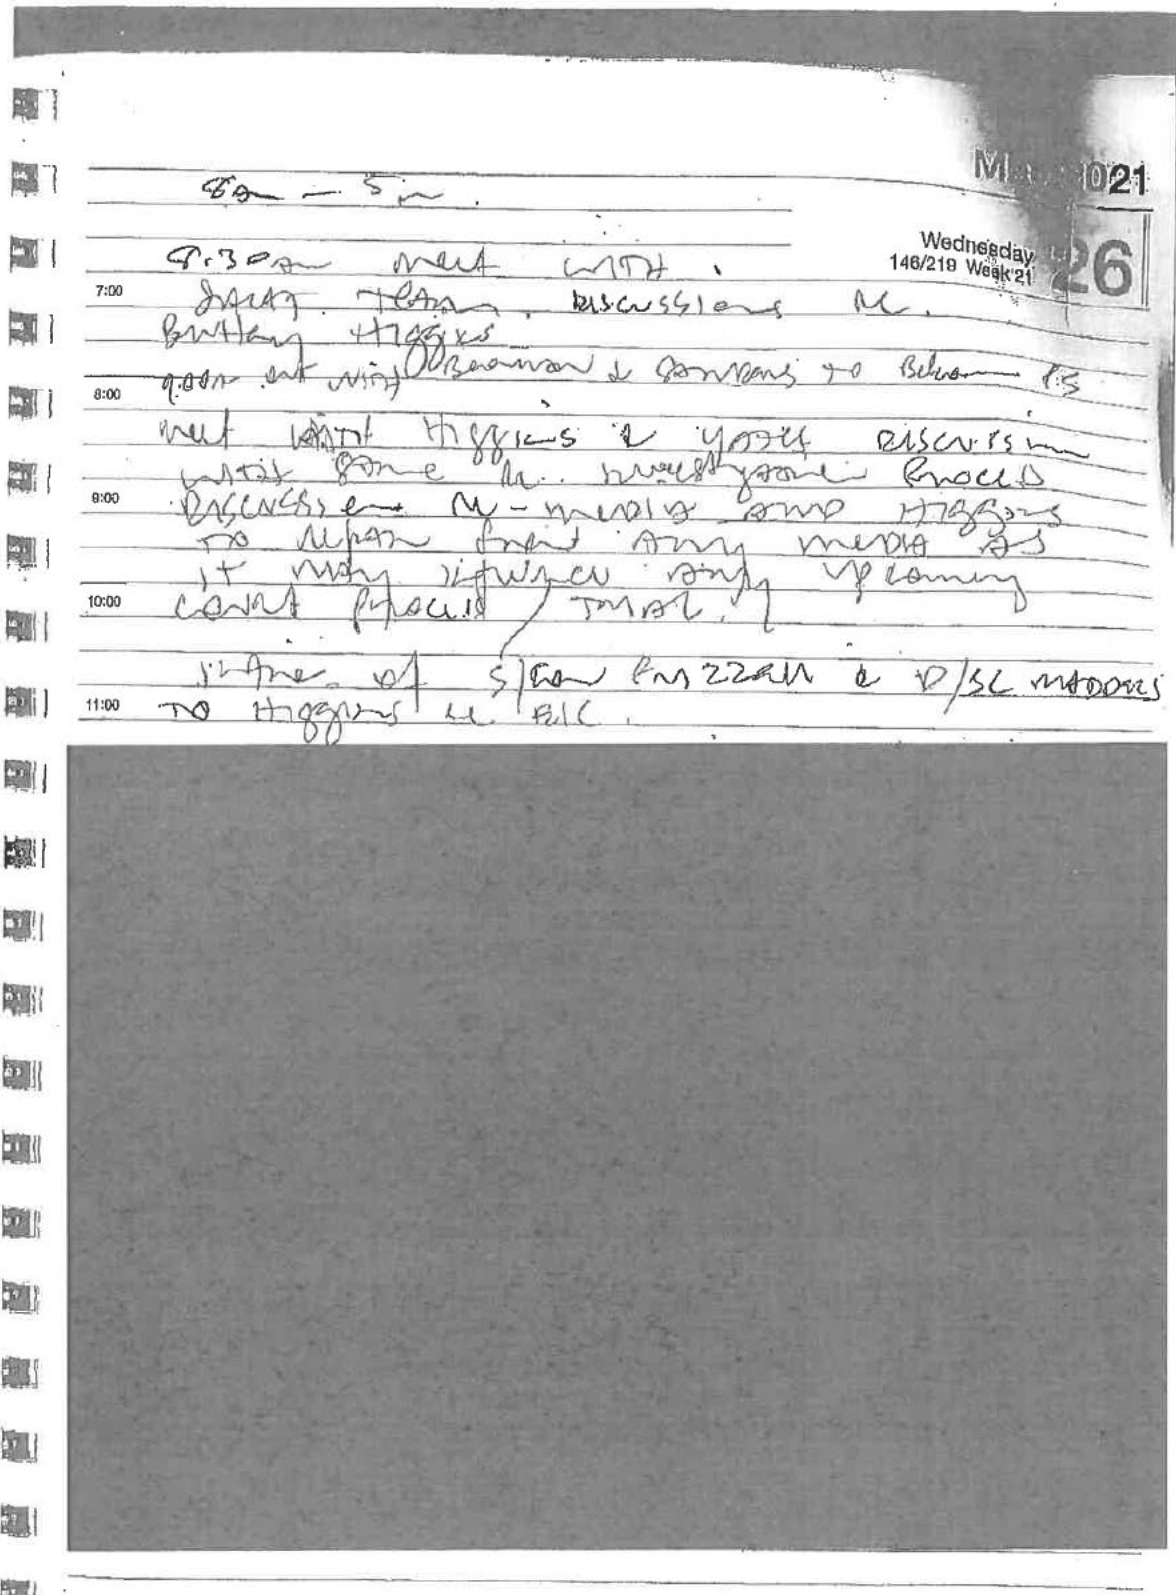 May 2021
Wednesday 26
146/219 Week 21
8am - 5pm.
8.30am meet with
7:00 team. Discussions re.
Brittany Higgins
8:00 9.00am out with Boorman & to Belconnen PS
meet with Higgins & Yates discussion
with same re. investigation process
9:00 Discussion re - media and Higgins
to refrain from any media as
it may influence any upcoming
10:00 court process / trial.
of S/Con Frizzell & D/SC Madders
11:00 to Higgins re